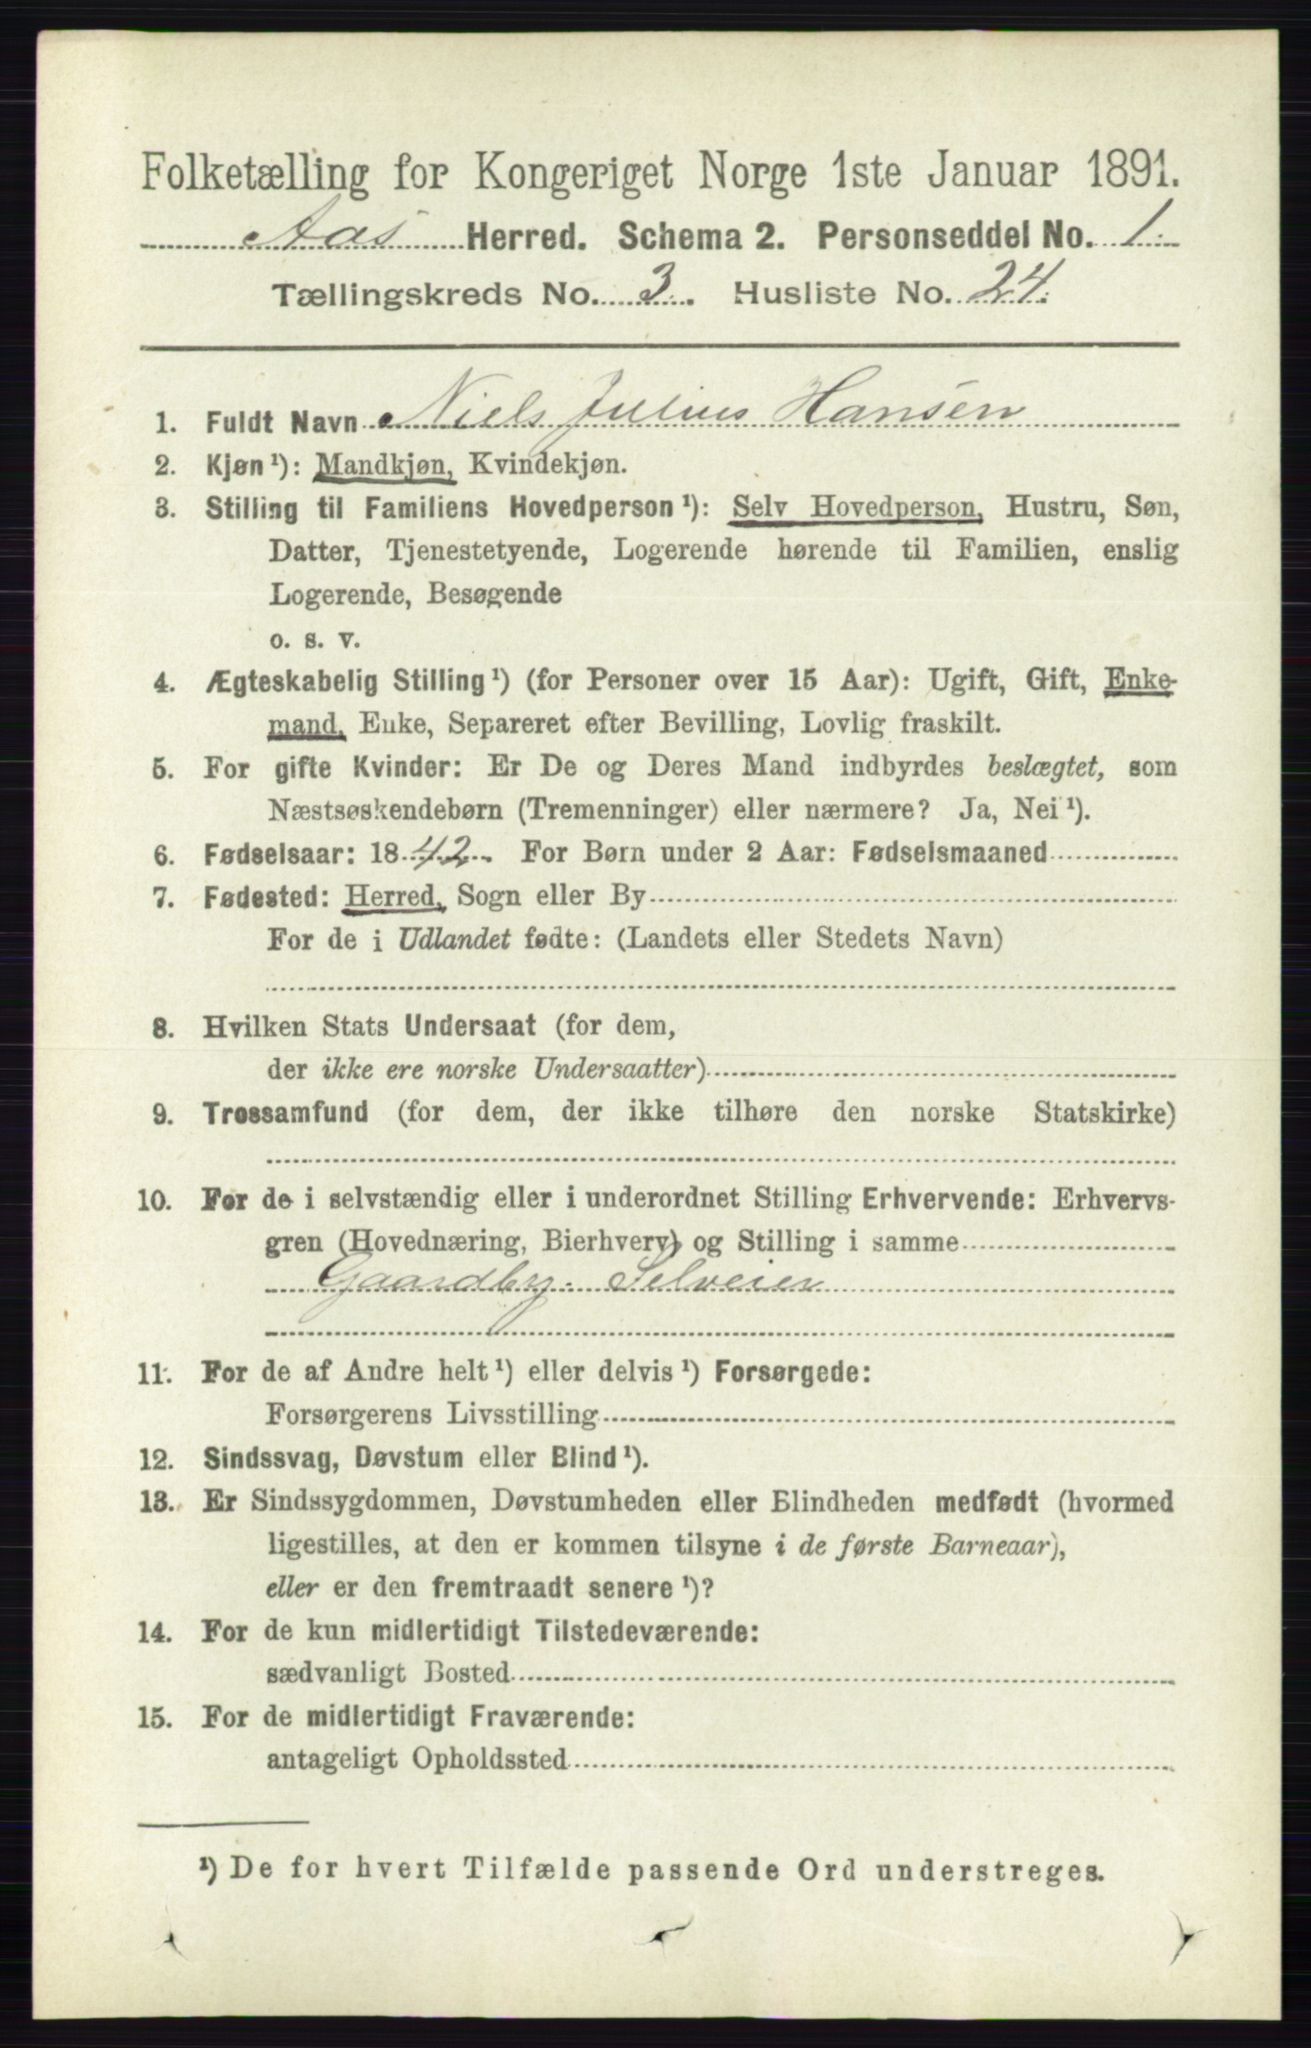 Folketælling for Kongeriget Norge 1ste Januar 1891.
Aas Herred. Schema 2. Personseddel No. 1.
Tællingskreds No. 3. Husliste No. 24.
1. Fuldt Navn Niels Julius Hansen
2. Kjøn¹): Mandkjøn, Kvindekjøn.
3. Stilling til Familiens Hovedperson¹): Selv Hovedperson, Hustru, Søn,
Datter, Tjenestetyende, Logerende hørende til Familien, enslig
Logerende, Besøgende
o. s. v.
4. Ægteskabelig Stilling¹) (for Personer over 15 Aar): Ugift, Gift, Enke-
mand, Enke, Separeret efter Bevilling, Lovlig fraskilt.
5. For gifte Kvinder: Er De og Deres Mand indbyrdes beslægtet, som
Næstsøskendebørn (Tremenninger) eller nærmere? Ja, Nei¹).
6. Fødselsaar: 1842. For Børn under 2 Aar: Fødselsmaaned
7. Fødested: Herred, Sogn eller By
For de i Udlandet fødte: (Landets eller Stedets Navn)
8. Hvilken Stats Undersaat (for dem,
der ikke ere norske Undersaatter)
9. Trossamfund (for dem, der ikke tilhøre den norske Statskirke)
10. For de i selvstændig eller i underordnet Stilling Erhvervende: Erhvervs-
gren (Hovednæring, Bierhverv) og Stilling i samme
Gaardby. Selveier
11. For de af Andre helt¹) eller delvis¹) Forsørgede:
Forsørgerens Livsstilling
12. Sindssvag, Døvstum eller Blind¹).
13. Er Sindssygdommen, Døvstumheden eller Blindheden medfødt (hvormed
ligestilles, at den er kommen tilsyne i de første Barneaar),
eller er den fremtraadt senere¹)?
14. For de kun midlertidigt Tilstedeværende:
sædvanligt Bosted
15. For de midlertidigt Fraværende:
antageligt Opholdssted
¹) De for hvert Tilfælde passende Ord understreges.